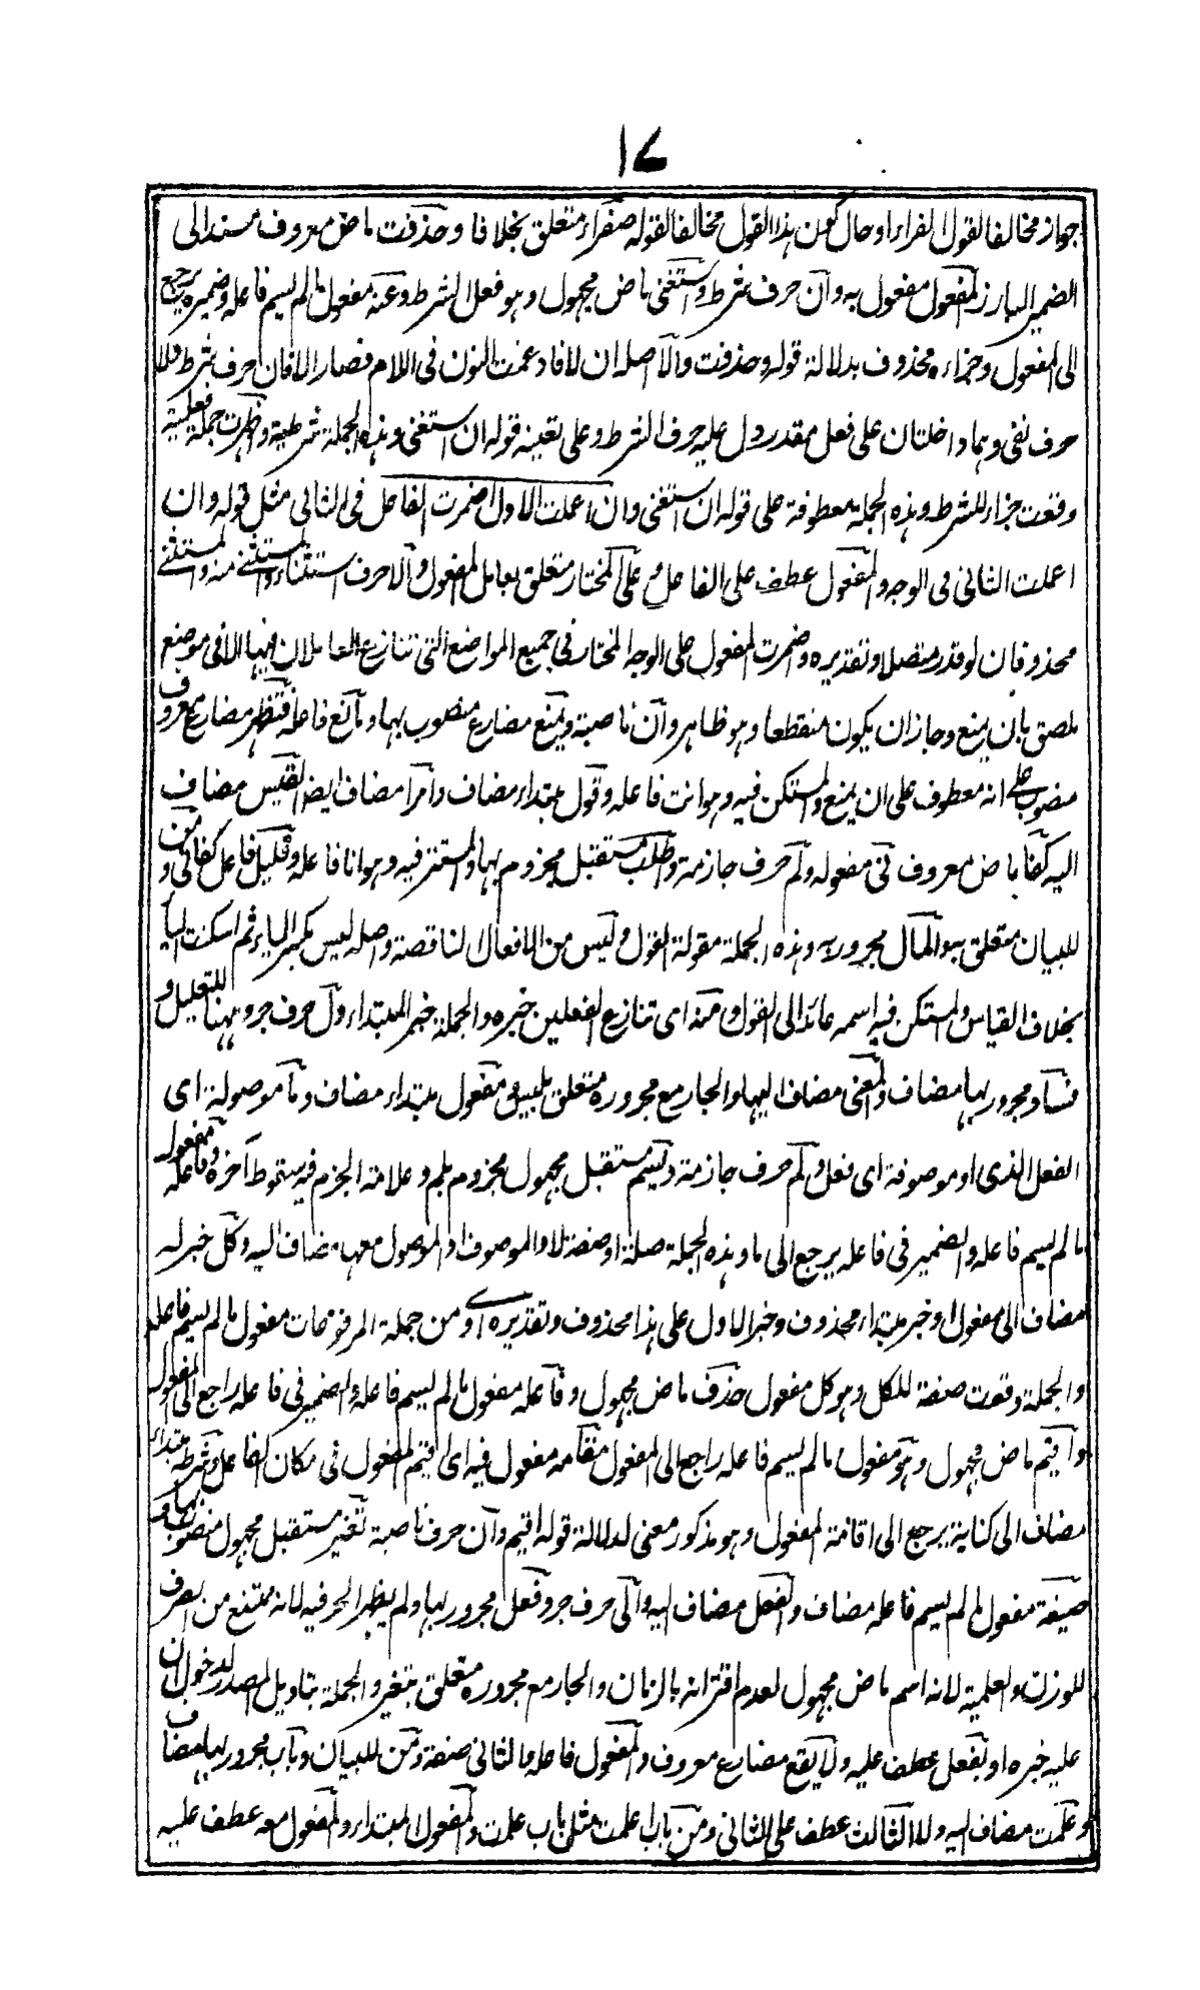 ١٧
جواز مخالفا لقول الفراء او حال كون هذا القول مخالفا لقوله صفراء متعلق بخلافا وحذفت ماض معروف مسند الى
الضمير البارز المفعول مفعول به وان حرف شرط واستغنى ماض مجهول وهو فعل الشرط وعنه مفعول ما لم يسم فاعله وضميره يرجع
الى المفعول وجزاءه محذوف بدلالة قوله وحذفت والا اصله ان لا فادغمت النون فى اللام فصار الا فان حرف شرط ولا
حرف نفى وهما داخلتان على فعل مقدر دل عليه حرف الشرط وعلى تعينه قوله ان استغنى وهذه الجملة شرطية واظهرت جملة فعلية
وقعت جزاء للشرط وهذه الجملة معطوفة على قوله ان استغنى وان اعملت الاول اضمرت الفاعل فى الثانى مثل قوله وان
اعملت الثانى فى الوجه والمفعول عطف على الفاعل وعلى المختار متعلق بعامل المفعول والا حرف استثناء والمستثنى منه والمستثنى
محذوفان لو قدر متصلا وتقديره واضمرت المفعول على الوجه المختار فى جميع المواضع التى تنازع العاملان فيها الا فى موضع
ملصق بان يمنع وجاز ان يكون منقطعا وهو ظاهر وان ناصبة ويمنع مضارع منصوب بها ومانع فاعله فتظهر مضارع معروف
منصوب على انه معطوف على ان يمنع والمستكن فيه وهو انت فاعله وقول مبتداء مضاف وامرأ مضاف ايضا القيس مضاف
اليه كفا ماض معروف نى مفعوله ولم حرف جازمة واطلب مستقبل مجزوم بها والمستتر فيه وهو انا فاعله وقليل فاعل كفانى ومن
للبيان متعلق به والمال مجرور به وهذه الجملة مقولة القول وليس من الافعال الناقصة واصله ليس بكسر الياء ثم اسكنت الياء
بخلاف القياس والمستكن فيه اسمه عائد الى القول ومنه اى تنازع الفعلين خبره والجملة خبر المبتداء ول حرف جر وههنا للتعليل و
فساد مجرور بها مضاف والمعنى مضاف اليها والجار مع مجروره متعلق بليس ومفعول مبتداء مضاف وما موصولة اى
الفعل الذى او موصوفة اى فعل ولم حرف جازمة ويسم مستقبل مجهول مجزوم بلم وعلامة الجزم فيه سقوط آخره وفاعله مفعول
ما لم يسم فاعله والضمير فى فاعله يرجع الى ما وهذه الجملة صلة او صفة لا والموصوف او الموصول معها مضاف اليه وكل خبر له
مضاف الى مفعول او خبر مبتداء محذوف وخبر الاول على هذا محذوف وتقديره او ومن جملة المرفوعات مفعول ما لم يسم فاعله
والجملة وقعت صفة للكل وهو كل مفعول حذف ماض مجهول وفاعله مفعول ما لم يسم فاعله والضمير فى فاعله راجع الى المفعول
واقيم ماض مجهول وهو مفعول ما لم يسم فاعله راجع الى المفعول مقامه مفعول فيه اى اقيم المفعول فى مكان الفاعل وشرطه مبتداء
مضاف الى كناية يرجع الى اقامة المفعول وهو مذكور معنى لدلالة قوله اقيم وان حرف ناصبة تغير مستقبل مجهول منصوب بها و
صيغة مفعول ما لم يسم فاعله مضاف والفعل مضاف اليه والى حرف جر وفعل مجرور بها ولم يظهر الجر فيه لانه ممتنع من الصرف
للوزن والعلمية لانه اسم ماض مجهول لعدم اقترانه بالزمان والجار مع مجروره متعلق بتغير والجملة بتاويل المصدر لدخول ان
عليه خبره او يفعل عطف عليه ولا يقع مضارع معروف والمفعول فاعله والثانى صفة ومن للبيان وباب مجرور بها مضاف
وعلمت مضاف اليه ولا الثالث عطف على الثانى ومن باب اعلمت مثل باب علمت والمفعول المبتداء والمفعول معه عطف عليه